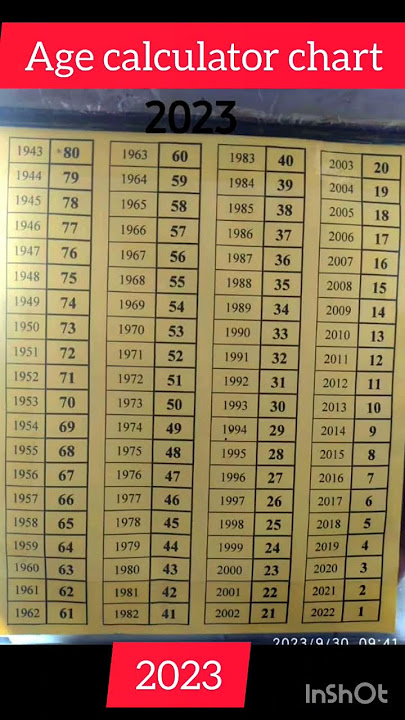 Age calculator chart
2023
1943 80 1963 60 1983 40 2003 20
1944 79 1964 59 1984 39 2004 19
1945 78 1965 58 1985 38 2005 18
1946 77 1966 57 1986 37 2006 17
1947 76 1967 56 1987 36 2007 16
1948 75 1968 55 1988 35 2008 15
1949 74 1969 54 1989 34 2009 14
1950 73 1970 53 1990 33 2010 13
1951 72 1971 52 1991 32 2011 12
1952 71 1972 51 1992 31 2012 11
1953 70 1973 50 1993 30 2013 10
1954 69 1974 49 1994 29 2014 9
1955 68 1975 48 1995 28 2015 8
1956 67 1976 47 1996 27 2016 7
1957 66 1977 46 1997 26 2017 6
1958 65 1978 45 1998 25 2018 5
1959 64 1979 44 1999 24 2019 4
1960 63 1980 43 2000 23 2020 3
1961 62 1981 42 2001 22 2021 2
1962 61 1982 41 2002 21 2022 1
2023/9/30 09:41
2023
InShOt